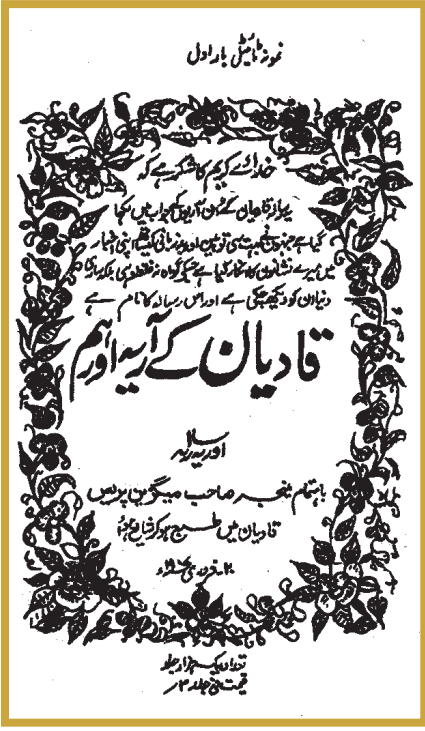 نمونہ ٹائیٹل بار اول
خدائے کریم کا شکر ہے کہ
یہ رسالہ قادیان کے اُن آریوں کے جواب میں لکھا
گیا ہے جنہوں نے بہت سی توہین اور بدزبانی کے ساتھ اپنی اخبار
میں میرے نشانوں کا انکار کیا ہے جسکے گواہ نہ فقط وہی بلکہ ساری
دنیا ان کو دیکھ چکی ہے اور اس رسالہ کا نام ہے
قادیان کے آریہ اور ہم
اور یہ رسالہ
باہتمام منیجر صاحب میگزین پریس
قادیان میں طبع ہو کر شائع ہوا
۲۰ فروری ۱۹۰۷ء
تعداد یک ہزار جلد
قیمت فی جلد ۲؍